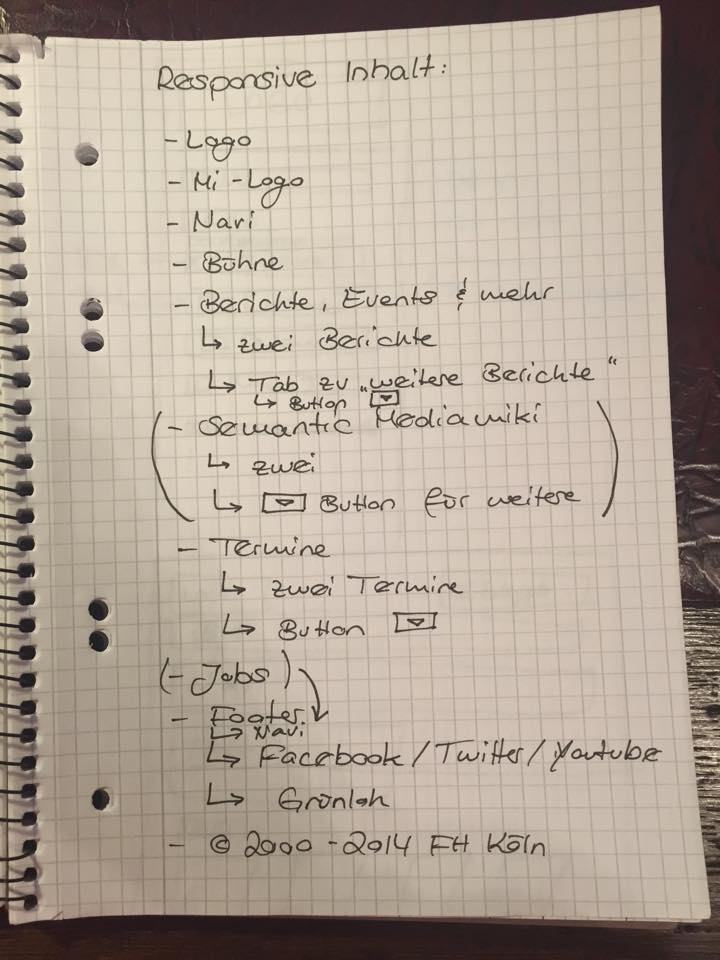 Responsive Inhalt:
- Logo
- Mi-Logo
- Navi
- Bühne
- Berichte, Events & mehr
↳ zwei Berichte
↳ Tab zu „weitere Berichte“
↳ Button
( - Semantic Mediawiki
↳ zwei
↳ Button für weitere )
- Termine
↳ zwei Termine
↳ Button
(- Jobs)
- Footer
↳ Navi
↳ Facebook / Twitter / Youtube
↳
- © 2000 - 2014 FH Köln